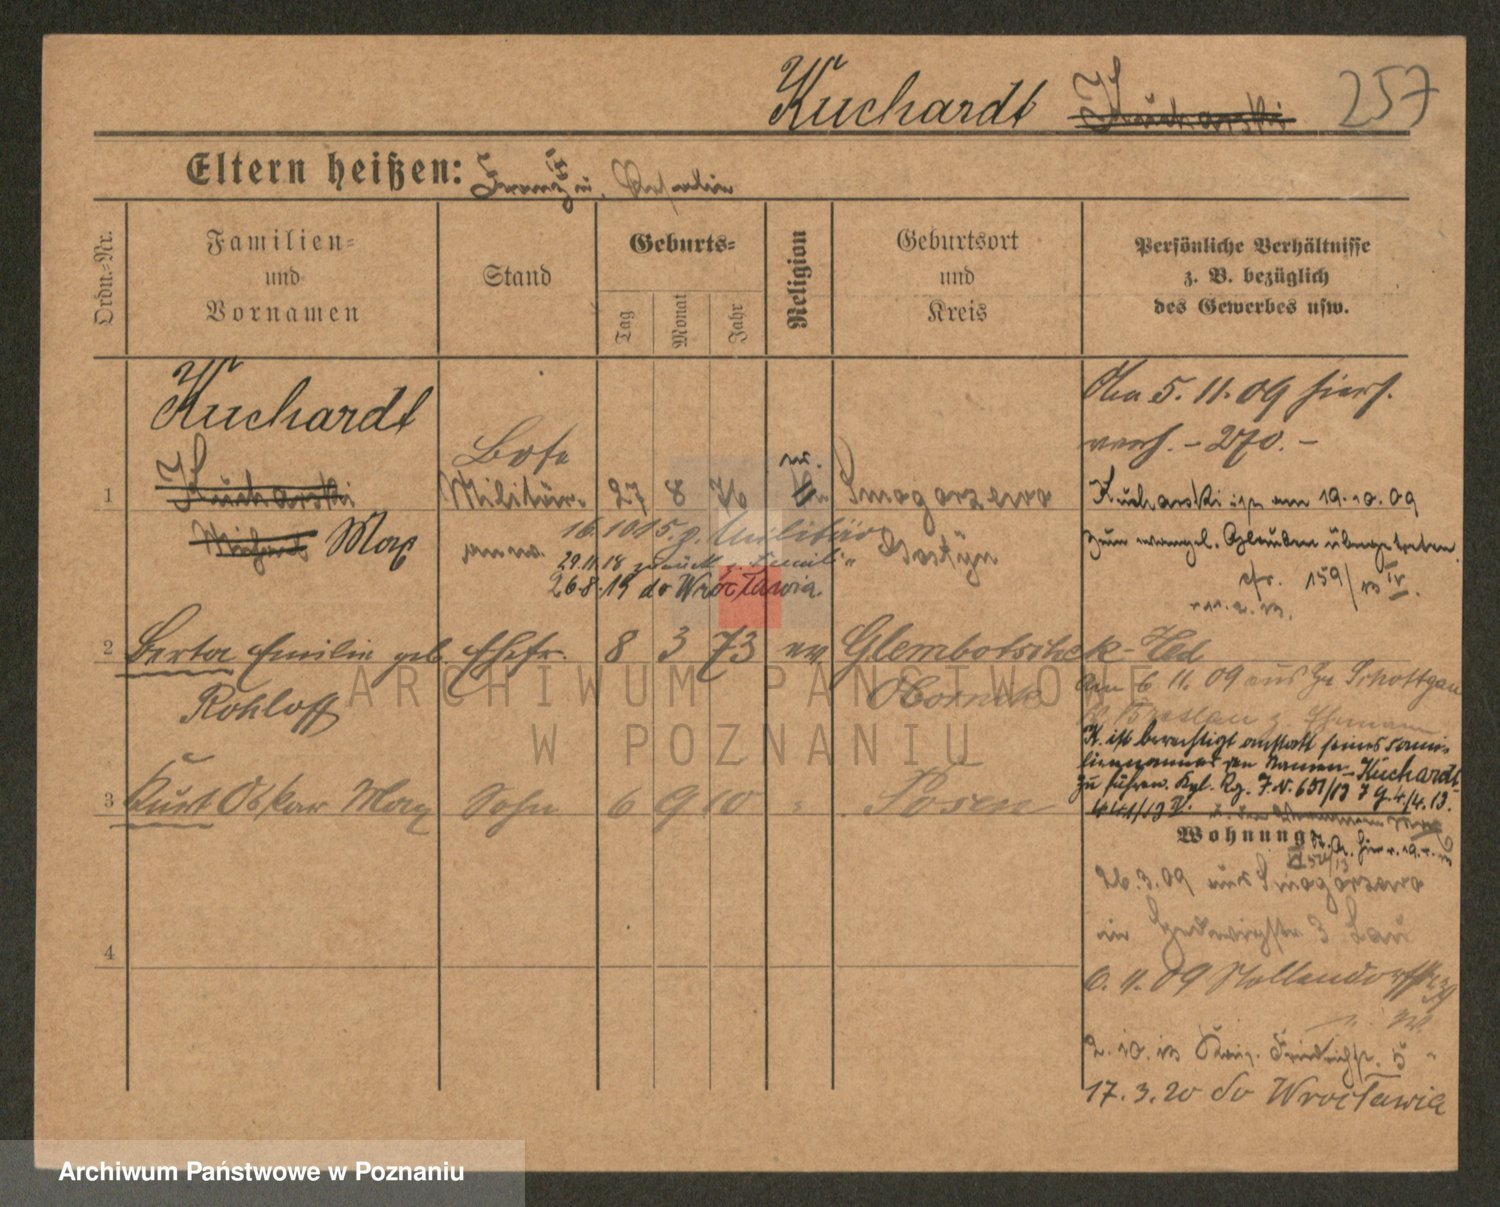 Kuchardt Kucharski 257
Eltern heißen: Franz u.
Ordn.-Nr.
Familien-
und
Vornamen
Stand
Geburts-
Tag
Monat
Jahr
Religion
Geburtsort
und
Kreis
Persönliche Verhältnisse
z. B. bezüglich
des Gewerbes usw.
Kuchardt
1 Kucharski Militär- 27 8 76 Smogorzewo
Michael Max
Gostyn
16.10 15. z. Militär
29.11.18 zurück z. Familie
26.8.19 do Wrocławia.
Am 5. 11. 09 hier
verh. - 270. -
Kucharski ist am 19.10.09
zum evangel. Glauben übergetreten.
cfr. 159/13 IV.
2 Berta Emilie geb. Ehefr. 8 3 73 ev Glembotschek-Hld
Rohloff
Obornik
Am 6. 11. 09 aus Gr Schottgau
Kr. Breslau z. Ehemann
K. ist berechtigt anstatt seines Fami-
liennamens den Namen Kuchardt
zu führen. Kgl. Rg.
3 Kurt Oskar Max Sohn 6 9 10 " Posen
Wohnung
26.3.09 aus Smogorzewo
in Hedwigstr 3
6. 11. 09 Nollendorfstr
2. 10. 13 Friedrichstr. 5
17. 3. 20 do Wrocławia
4
ARCHIWUM PAŃSTWOWE
W POZNANIU
Archiwum Państwowe w Poznaniu